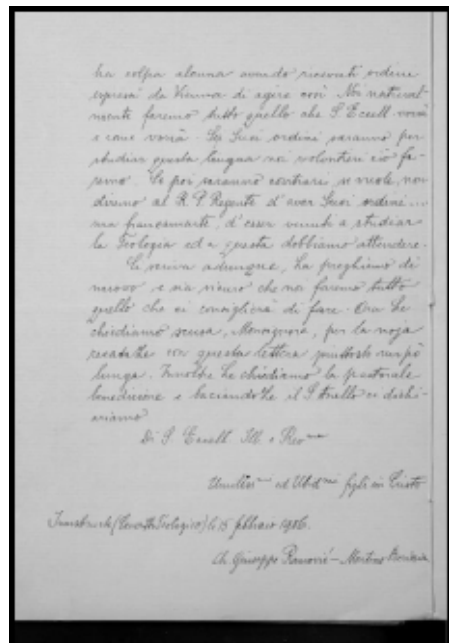 ha colpa alcuna avendo ricevuti ordine
espresso da Vienna di agire così. Noi natural-
mente faremo tutto quello che S. Eccell. vorrà
e come vorrà. Se i Suoi ordini saranno per
studiar questa lingua noi volontieri ciò fa-
remo. Se poi saranno contrarî, se vuole, noi
diremo al R. P. Regente d'aver Suoi ordini...
ma francamente, d'esser venuti a studiar
la Teologia ed a questa dobbiamo attendere.
Ci scriva adunque, La preghiamo di
nuovo e sia sicuro che noi faremo tutto
quello che ci consiglierà di fare. Ora Le
chiediamo scusa, Monsignore, per la noja
recataLe con questa lettera piuttosto un pò
lunga. Inoltre Le chiediamo la pastorale
benedizione e baciandoLe il S. Anello ci dichi-
ariamo
Di S. Eccell. Ill. e Rev.ma
Umilissimi ed Ubd.mi figli in Cristo
Innsbruck (Convitto Teologico) li 15 febbraio 1906.
Ch. Giuseppe - Martino